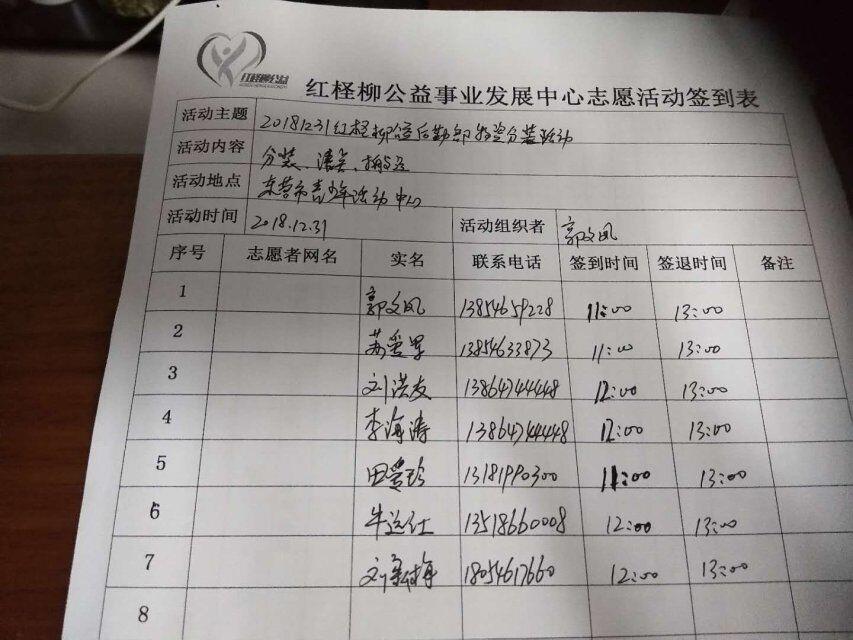 红柽柳公益
红柽柳公益事业发展中心志愿活动签到表
活动主题 20181231红柽柳仓后勤部物资分装活动
活动内容 分装、清关、搬运
活动地点 东营市青少年活动中心
活动时间 2018.12.31 活动组织者 郭文凤
序号 志愿者网名 实名 联系电话 签到时间 签退时间 备注
1 郭文凤 13854659228 11:00 13:00
2 13854633873 11:00 13:00
3 刘洪友 13864744448 12:00 13:00
4 李海涛 13864744448 12:00 13:00
5 田爱珍 13181990300 11:00 13:00
6 牛运仕 13518660008 12:00 13:00
7 18054617660 12:00 13:00
8